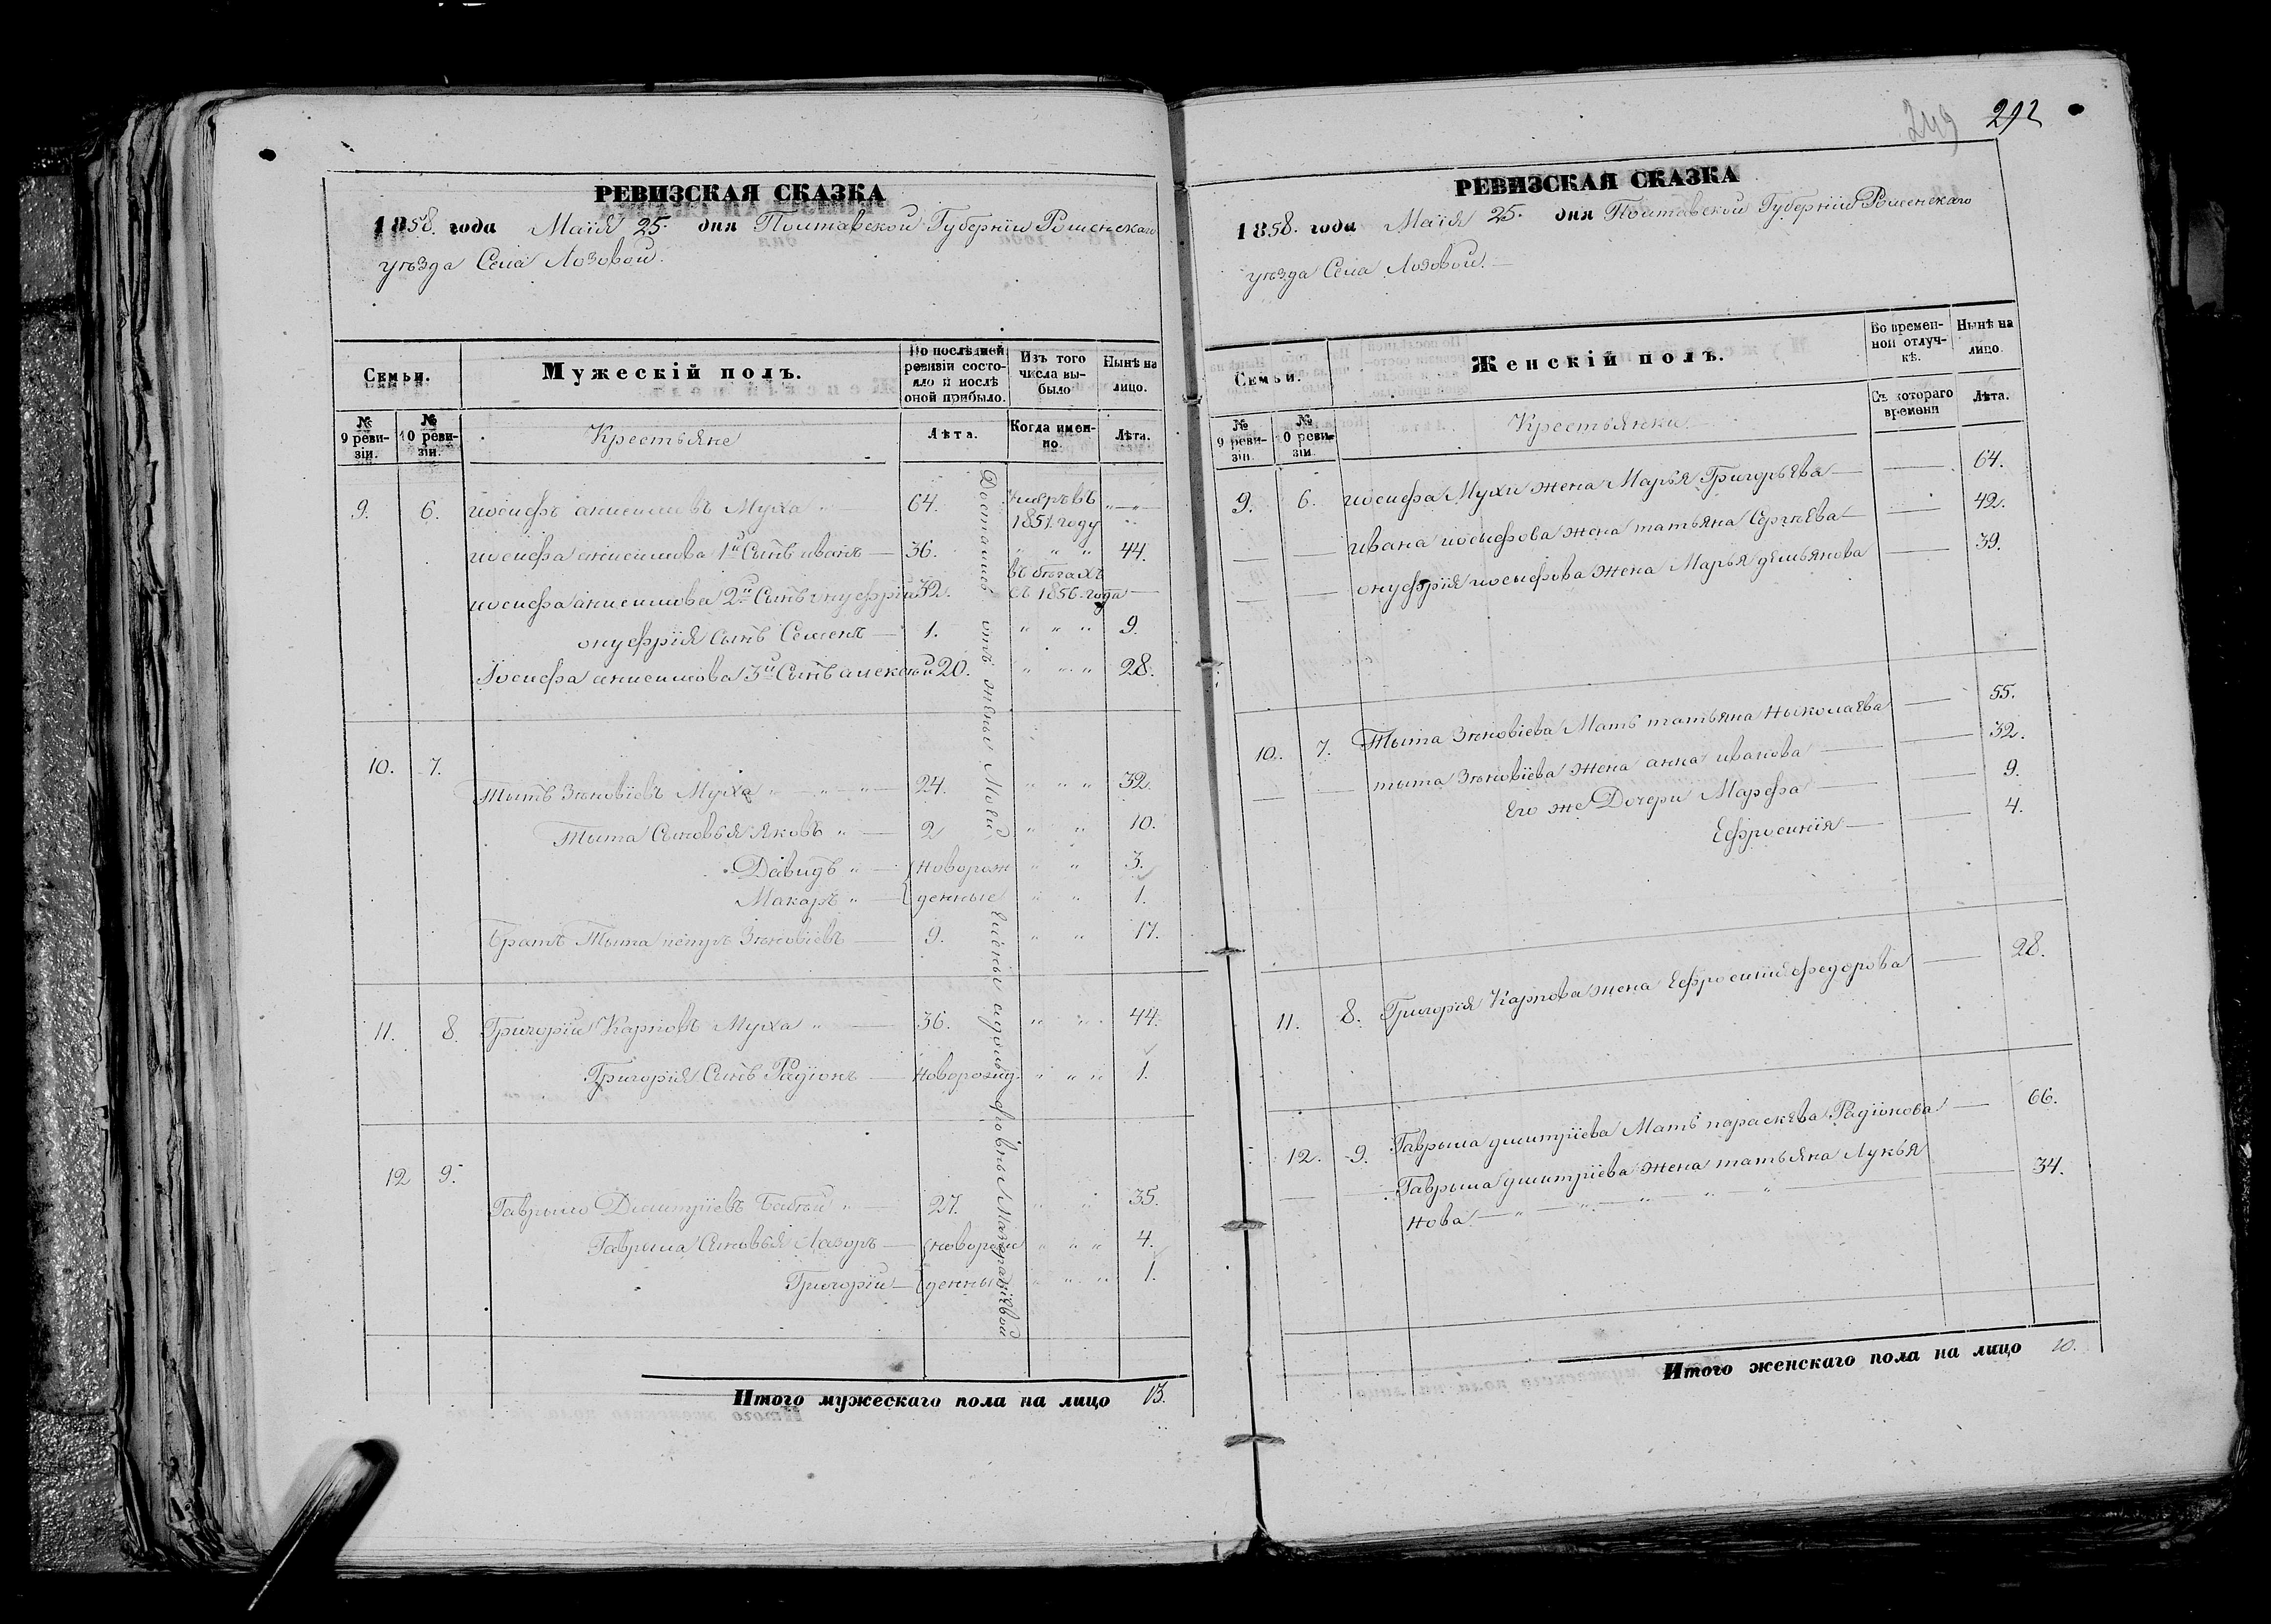 РЕВИЗСКАЯ СКАЗКА
1858. года Маія 25. дня Полтавской Губерніи Роменскаго
уѣзда Села Лозовой.
Семьи.
Мужескій полъ.
По послѣдней ревизіи состояло и послѣ оной прибыло.
Изъ того числа выбыло
Нынѣ на лицо.
№ 9 ревизіи.
№ 10 ревизіи.
Крестьяне
Лѣта.
Когда именно.
Лѣта.
9. 6. иосифъ анисимовъ Муха 64. умеръ въ 1851. году
иосифа анисимова 1й Сынъ иванъ 36. " " " 44.
иосифа анисимова 2й Сынъ онуфрій 32. въ бѣгахъ съ 1856. года
онуфрія сынъ Семенъ 1. " " " 9.
Іосифа анисимова 3й Сынъ алексѣй 20. " " " 28.
10. 7.
Тытъ Зѣновіевъ Муха " " " 24. " " " 32.
Тыта Сыновья Яковъ " 2 " " 10.
Давидъ " новорож " " 3.
Макаръ " денные " " 1.
братъ Тыта Зѣновіевъ 9. " " 17.
11. 8. Григорій Карповъ Муха " 36. " " 44.
Григорія Сынъ Радіонъ новорожд. " " " 1.
12 9.
Гаврыло Дмитріевъ " 27. " " 35.
Гаврыла Сыновья Лазоръ новорож " " " 4.
Григорій денны " " " 1.
Достались отъ жены Моей Елены
Итого мужескаго пола на лицо 13.
249 292
РЕВИЗСКАЯ СКАЗКА
1858. года Маія 25. дня Полтавской Губерніи Роменскаго
уѣзда Села Лозовой.
Семьи.
Женскій полъ.
Во временной отлучкѣ.
Нынѣ на лицо.
№ 9 ревизіи.
№ 10 ревизіи.
Крестьянки
Съ котораго времени
Лѣта.
9. 6. иосифа Мухи жена Марья Григорьева 64.
ивана иосифова жена татьяна Сергѣева 42.
онуфрія иосифова жена Марья демьянова 39.
10. 7. Тыта Зѣновіева Мать татьяна ныколаева 55.
тыта Зѣновіева жена анна иванова 32.
Его же Дочери Марфа 9.
Ефросинія 4.
11. 8. Григорія Карпова жена Ефросинія федорова 28.
12. 9. Гаврыла дмитріева Мать параскева Радіонова 66.
Гаврыла дмитріева жена татьяна Лукья 34.
нова " " " " "
Итого женскаго пола на лицо 10.